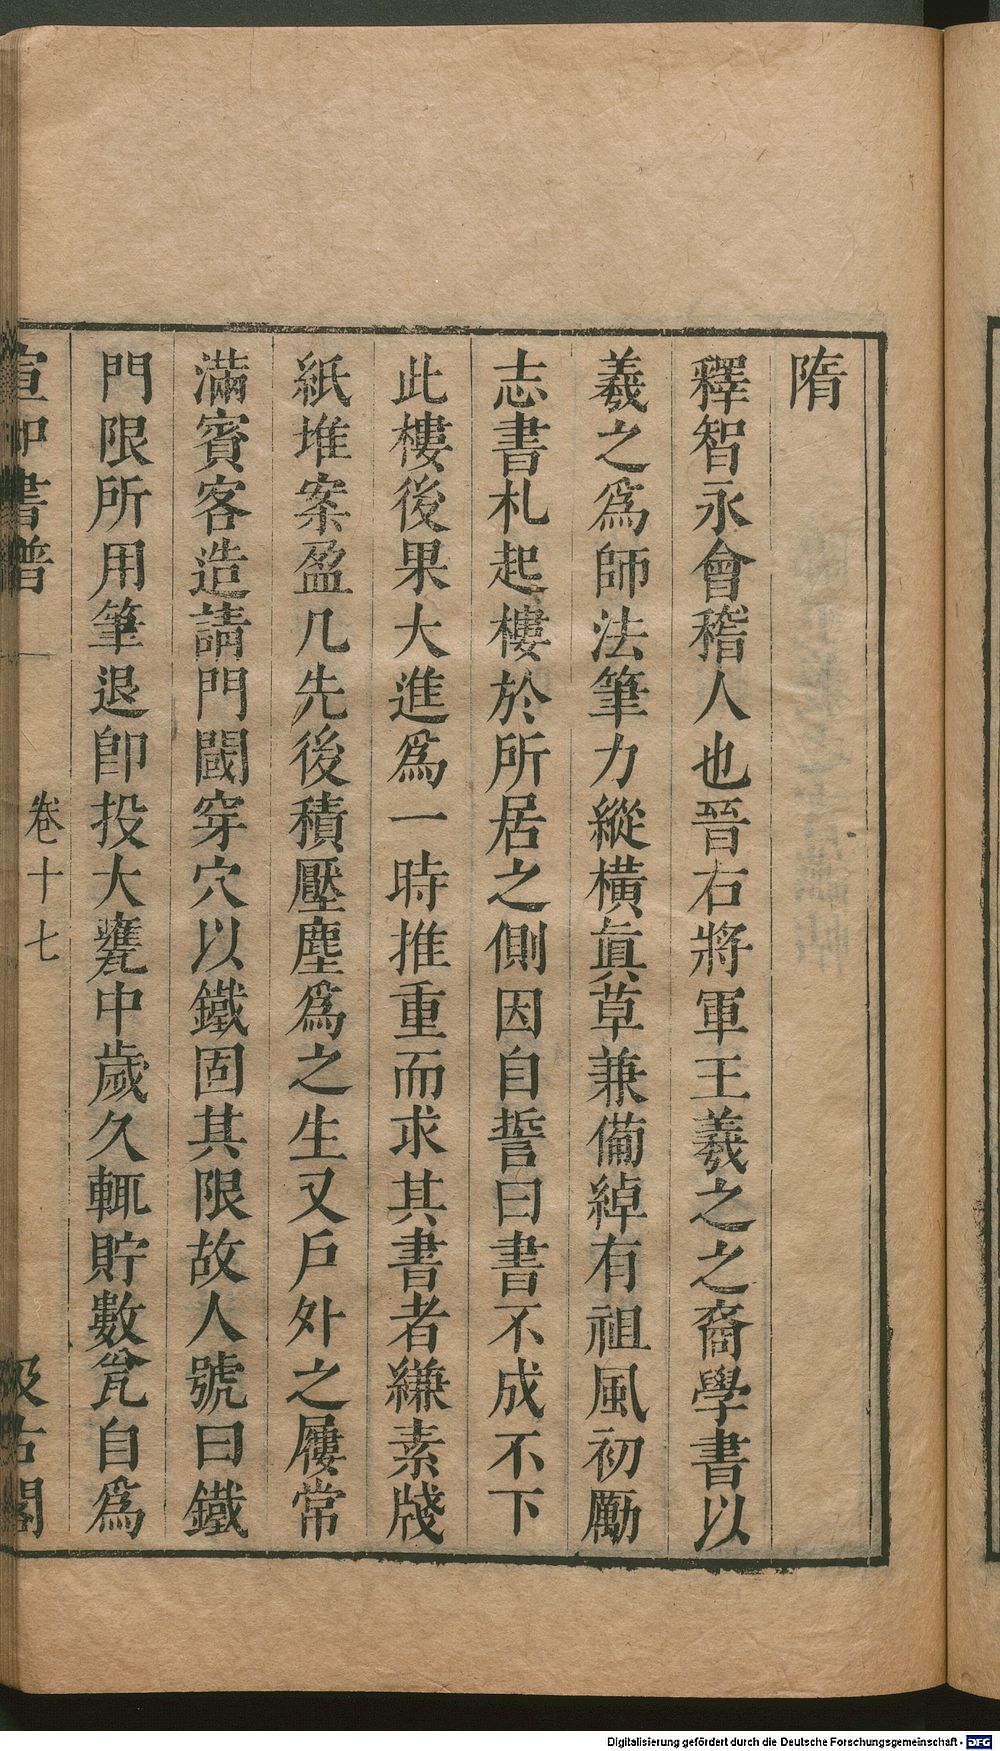 隋
釋智永會稽人也晉右將軍王羲之之裔學書以
羲之爲師法筆力縱橫眞草兼備綽有祖風初勵
志書札起樓於所居之側因自誓曰書不成不下
此樓後果大進爲一時推重而求其書者縑素牋
紙堆案盈几先後積壓塵爲之生又戶外之屨常
滿賓客造請門閾穿穴以鐵固其限故人號曰鐵
門限所用筆退卽投大甕中歲久輒貯數瓮自爲
宣和書譜 卷十七 汲古閣
Digitalisierung gefördert durch die Deutsche Forschungsgemeinschaft - DFG